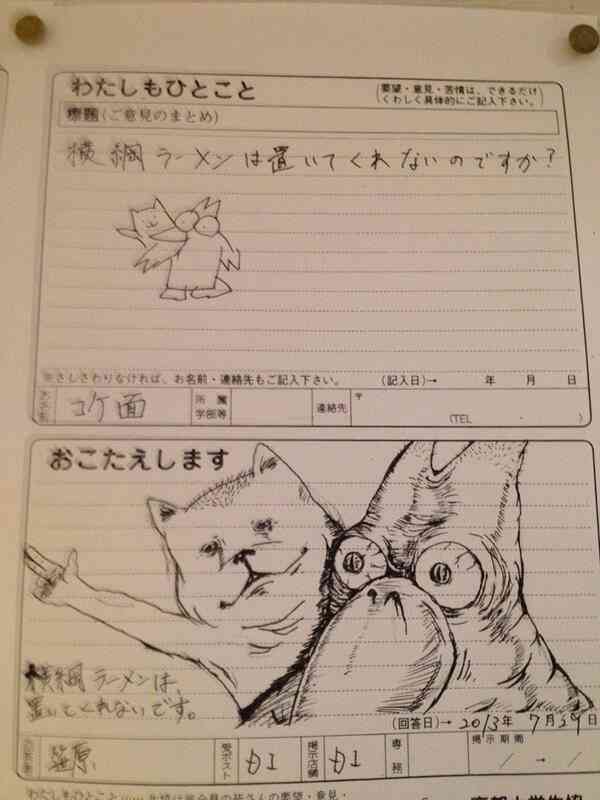 わたしもひとこと
要望・意見・苦情は、できるだけ
くわしく具体的にご記入下さい。
標題(ご意見のまとめ)
横綱ラーメンは置いてくれないのですか?
※さしさわりなければ、お名前・連絡先もご記入下さい。 (記入日)→ 年 月 日
お名前 コケ面 所属学部等 連絡先 〒 (TEL - )
おこたえします
横綱ラーメンは、
置いてくれないです。
(回答日)→2013年 7月29日
お名前 笹原 受ポスト カエ 掲示店舗 カエ 専務 掲示期間 →
わたしもひとこと